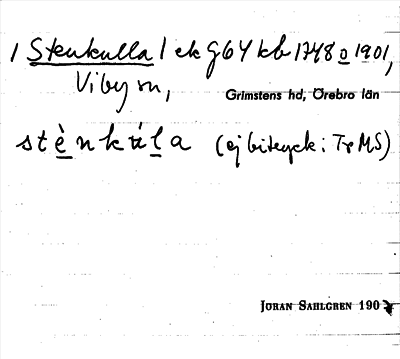 / Stenkulla / ek g 64 kb 1748 o 1901,
Viby sn,
Grimstens hd, Örebro län
stènkúla (ej bitryck: Tr MS)
JÖRAN SAHLGREN 190